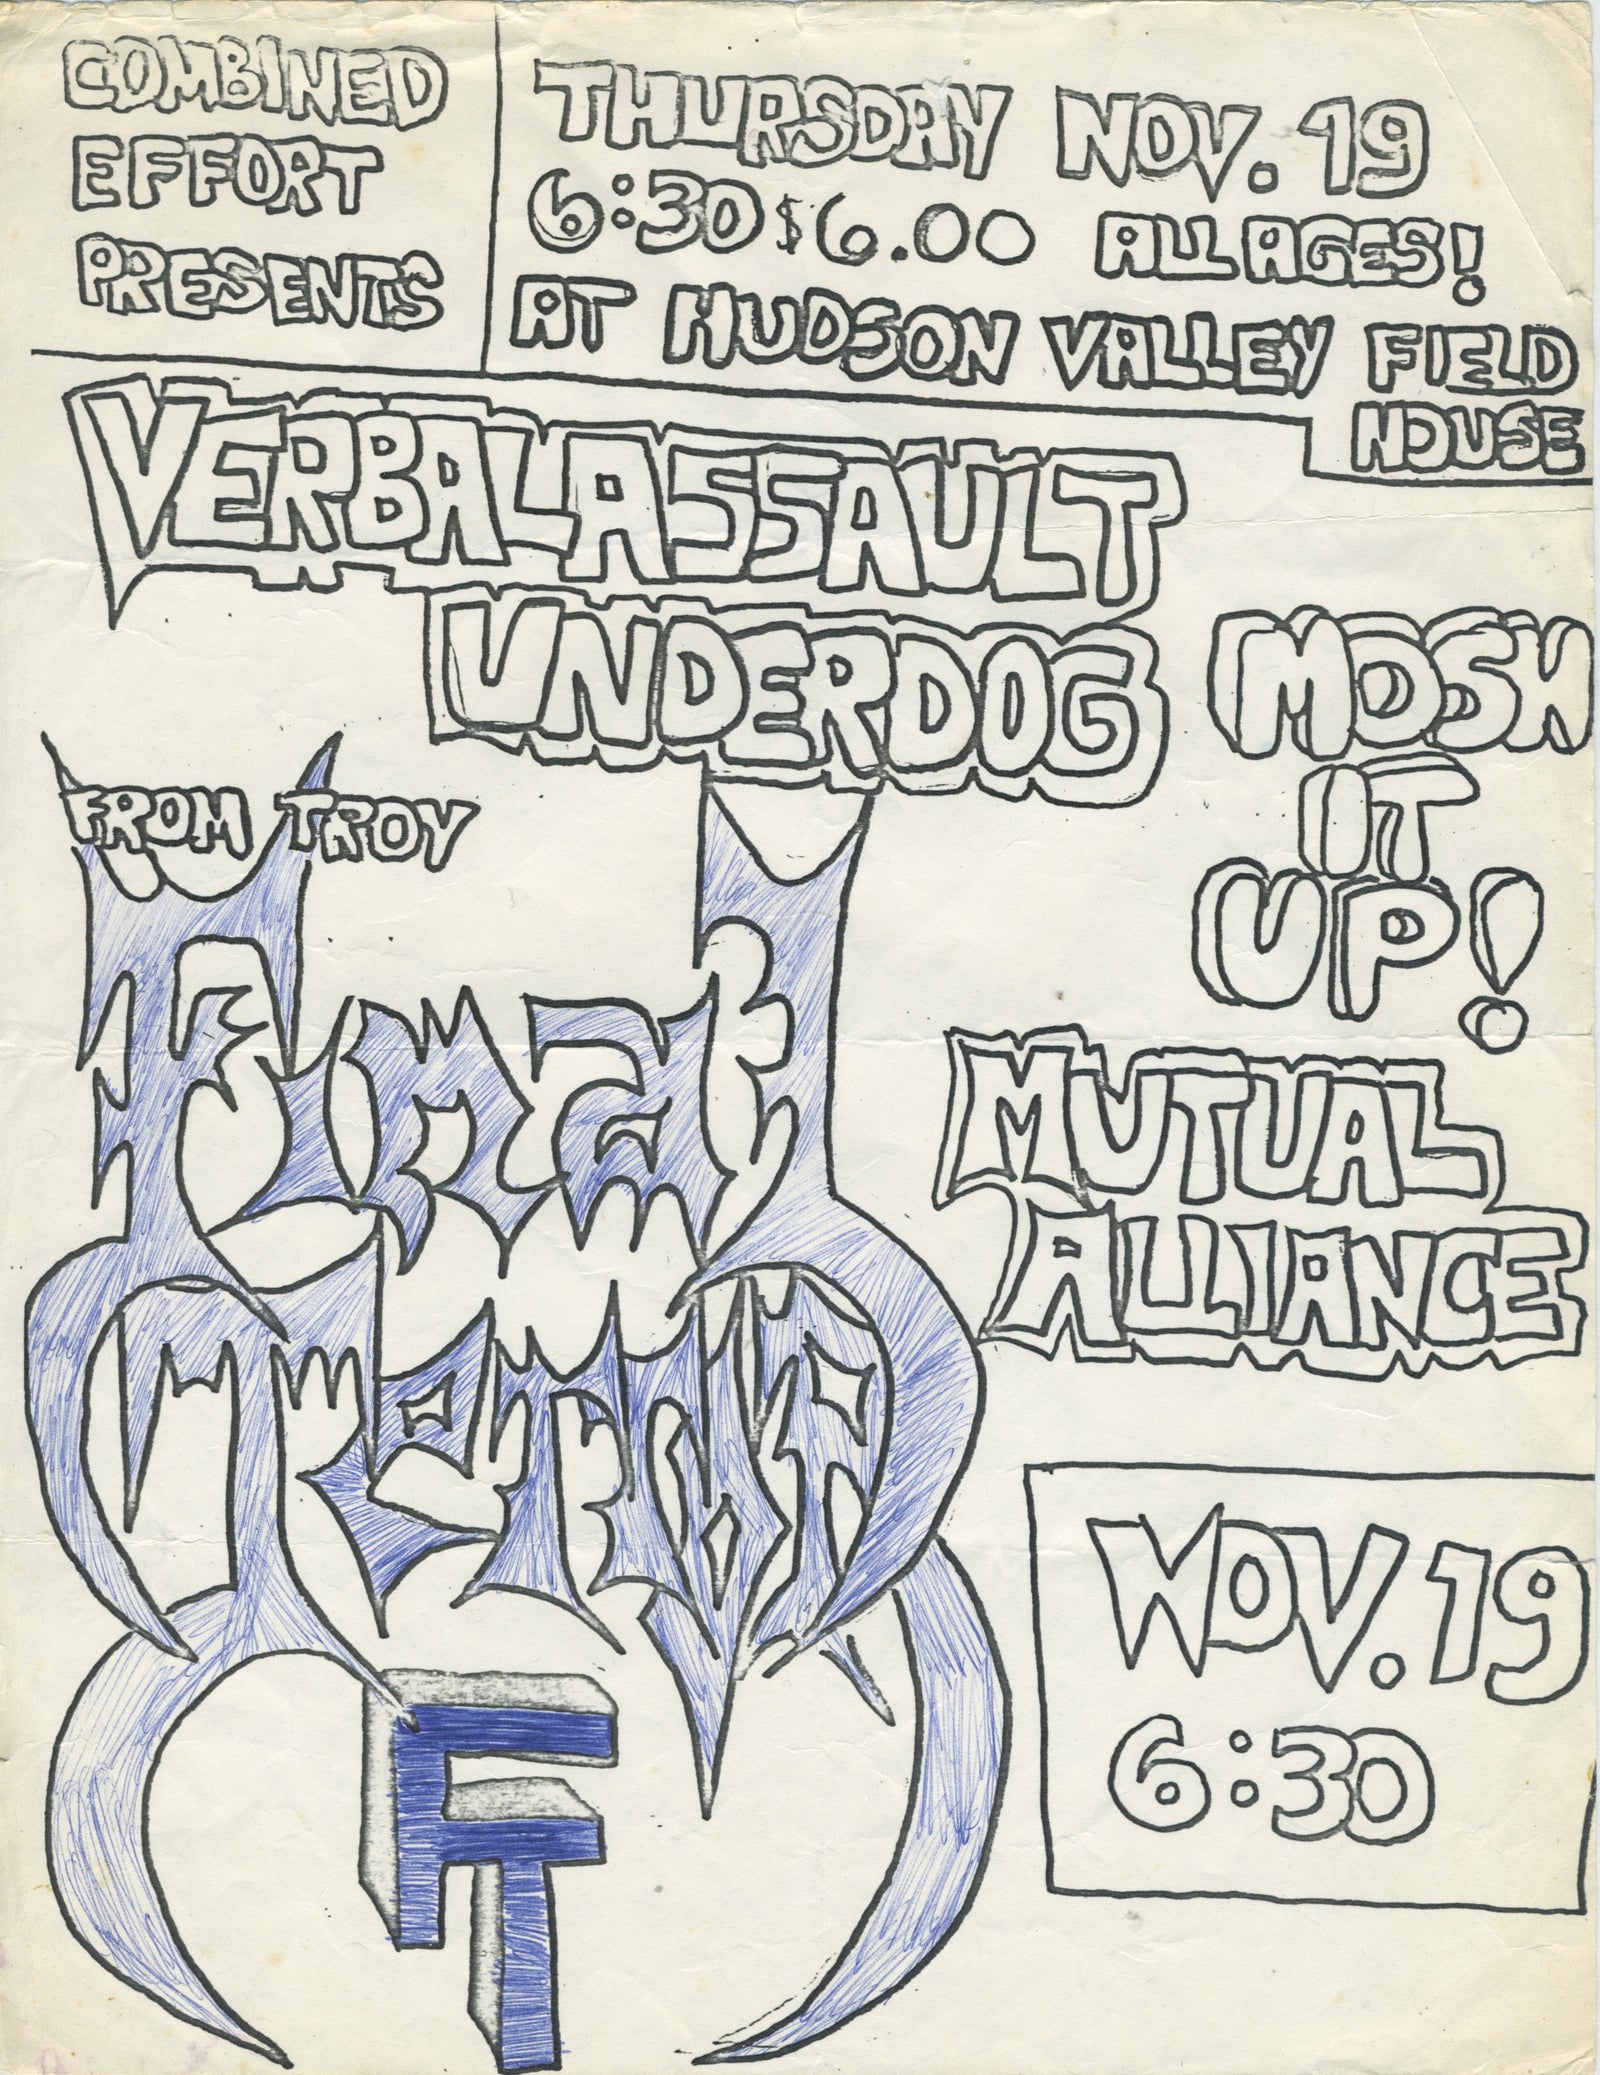 COMBINED
EFFORT
PRESENTS
THURSDAY NOV. 19
6:30 $6.00 ALL AGES!
AT HUDSON VALLEY FIELD
HOUSE
VERBAL ASSAULT
UNDERDOG
MOSH
IT
UP!
FROM TROY
Final
Terror
MUTUAL
ALLIANCE
FT
NOV. 19
6:30